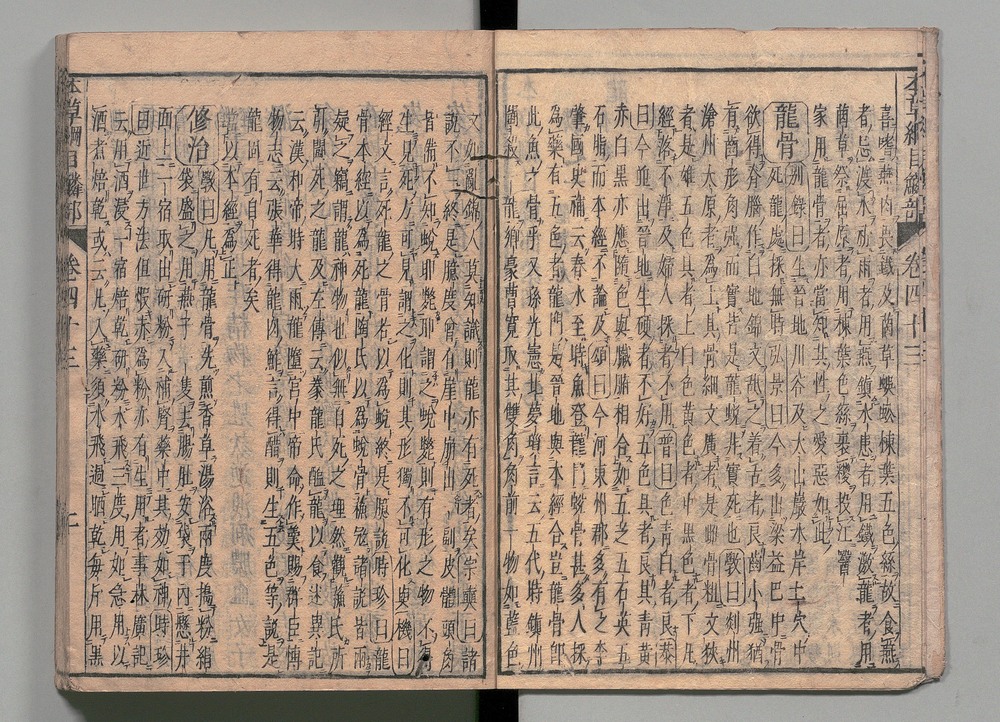 本草綱目鱗部 卷四十三
喜嗜燕肉畏鐵及菵草蜈蚣楝葉五色絲故食燕
者忌渡水祈雨者用燕鎮水患者用鐵激龍者用
菵草祭屈原者用楝葉色絲裹糉投江醫
家用龍骨者亦當知其性之愛惡如此
龍骨 別錄曰生晉地川谷及太山巖水岸土穴中
死龍處採無時弘景曰今多出梁益巴中骨
欲得脊腦作白地錦文舐之着舌者良齒小強猶
有齒形角強而實皆是龍蛻非實死也斅曰剡州
滄州大原者爲上其骨細文廣者是雌骨粗文狹
者是雄五色具者上白色黃色者中黑色者下凡
經落不淨及婦人採者不用普曰色青白者良恭
曰今並出晉地生硬者不好五色具者良其青黃
赤白黑亦應隨色與臟腑相合如五芝五石英五
石脂而本經不論及頌曰今河東州郡多有之李
肇國史補云春水至時魚登龍門蛻骨甚多人採
爲藥有五色者龍門是晉地與本經合豈龍骨卽
此魚之骨乎又孫光憲北夢瑣言云五代時鎮州
鬭殺一龍鄉豪曹寬取其雙角角前一物如藍色
文如亂錦人莫知識則龍亦有死者矣宗奭曰諸
說不一終是臆度曾有崖中崩出一副皮體頭角
皆備不知蛻耶斃耶謂之蛻斃則有形之物不得
生見死方可見謂之化則其形獨不可化與機曰
經文言死龍之骨若以爲蛻終是臆說時珍曰龍
骨本經以爲死龍陶氏以爲蛻骨蘇寇諸說皆兩
疑之竊謂龍神物也似無自死之理然觀蘇氏所
引鬭死之龍及左傳云豢龍氏醢龍以食述異記
云漢和帝時大雨龍墮宮中帝命作羹賜群臣博
物志云張華得龍肉鮓言得醋則生五色等說是
龍固有自死者矣
當以本經爲正
修治 斅曰凡用龍骨先煎香草湯浴兩度搗粉絹
袋盛之用燕子一隻去腸肚安袋于內懸井
面上一宿取出研粉入補腎藥中其效如神時珍
曰近世方法但煅赤爲粉亦有生用者事林廣記
云用酒浸一宿焙乾研粉水飛三度用如急用以
酒煮焙乾或云凡入藥須水飛過晒乾每斤用黑
本草綱目鱗部 卷四十三